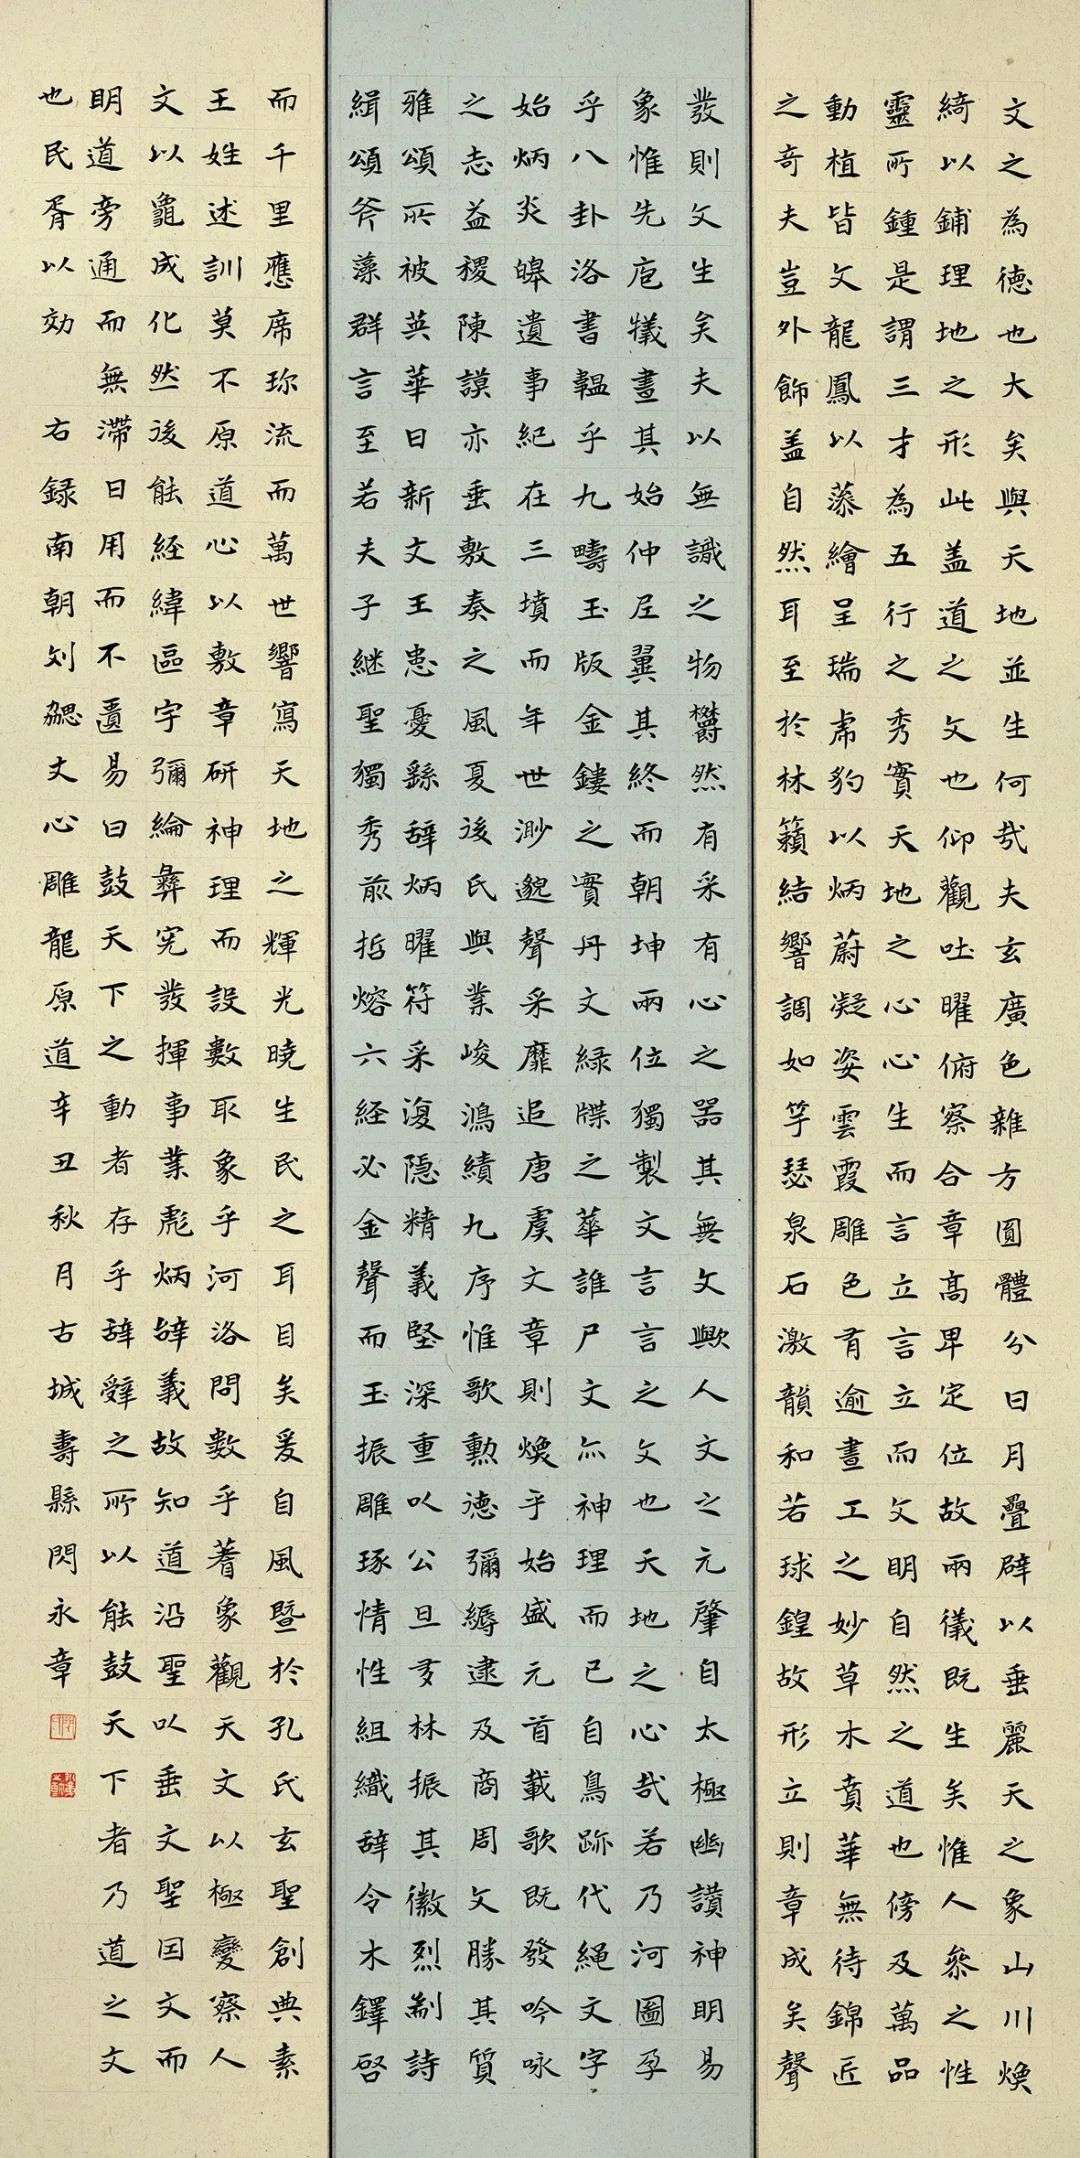 文之為德也大矣與天地並生何哉夫玄廣色雜方圓體分日月疊辟以垂麗天之象山川煥
綺以鋪理地之形此盖道之文也仰觀吐曜俯察合章高卑定位故兩儀既生矣惟人叅之性
靈所鍾是謂三才為五行之秀實天地之心心生而言立言立而文明自然之道也傍及萬品
動植皆文龍鳳以藻繪呈瑞虎豹以炳蔚凝姿雲霞雕色有逾畫工之妙草木賁華無待錦匠
之奇夫豈外飾盖自然耳至於林籟結響調如竽瑟泉石激韻和若球鍠故形立則章成矣聲
發則文生矣夫以無識之物欝然有采有心之器其無文歟人文之元肇自太極幽讃神明易
象惟先庖犧畫其始仲尼翼其終而朝坤兩位獨製文言言之文也天地之心哉若乃河圖孕
乎八卦洛書韞乎九疇玉版金鏤之實丹文緑牒之華誰尸文亦神理而已自鳥跡代繩文字
始炳炎皞遺事紀在三墳而年世渺邈聲采靡追唐虞文章則煥乎始盛元首載歌既發吟咏
之志益稷陳謨亦垂敷奏之風夏後氏與業峻鴻績九序惟歌勲德彌縟逮及商周文勝其質
雅頌所被英華日新文王患憂繇辞炳曜符采復隱精義堅深重以公旦多林振其徽烈剬詩
緝頌斧藻群言至若夫子継聖獨秀前哲熔六経必金聲而玉振雕琢情性組織辞令木鐸啓
而千里應席珍流而萬世響寫天地之輝光曉生民之耳目矣爰自風暨於孔氏玄聖創典素
王姓述訓莫不原道心以敷章研神理而設數取象乎河洛問數乎蓍象觀天文以極變察人
文以龜成化然後能経緯區宇彌綸彝究發揮事業彪炳辞義故知道沿聖以垂文聖因文而
明道旁通而無滯日用而不匱易曰鼓天下之動者存乎辞辭之所以能鼓天下者乃道之文
也民胥以効 右録南朝刘勰文心雕龍原道辛丑秋月古城壽縣閃永章